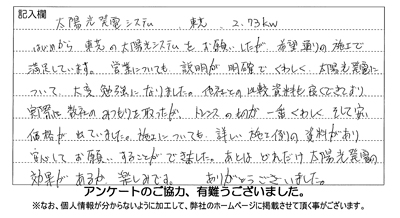 記入欄
太陽光発電システム 東芝 2.73kW
はじめから 東芝の太陽光システムを お願いしたが、希望通りの施工で
満足しています。営業についても 説明が明確で くわしく、太陽光発電に
ついて 大変 勉強に なりました。他社との 比較資料も 良くできており
実際は数社の みつもりを取ったが、トレンスのものが 一番くわしく そして安い
価格が 出ていました。施工についても、詳しい施工例の資料があり
安心して お願い することが できました。あとは どれだけ太陽光発電の
効果があるか 楽しみです。 ありがとうございました。
アンケートのご協力、有難うございました。
※なお、個人情報が分からないように加工して、弊社のホームページに掲載させて頂く事がございます。